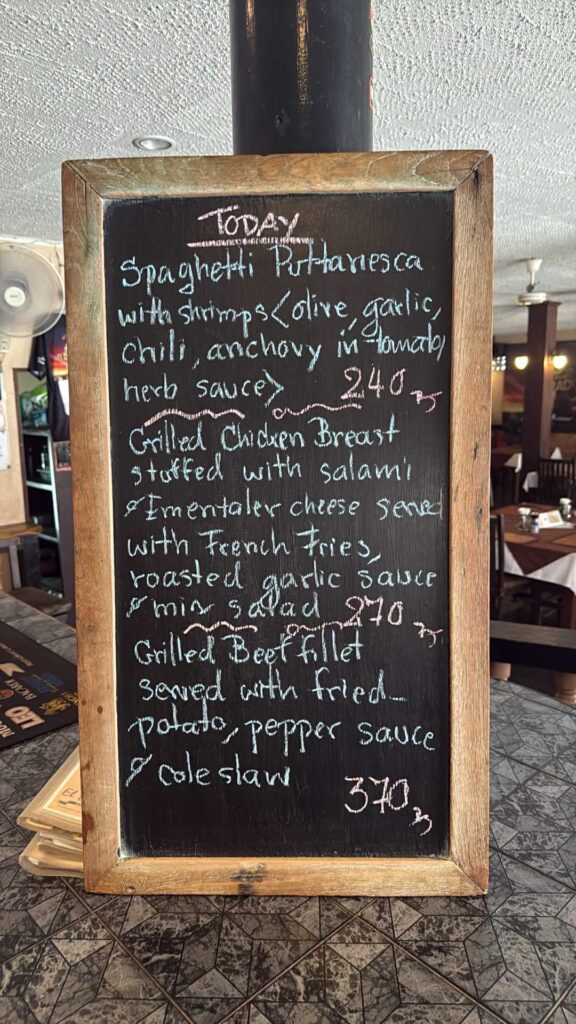 TODAY
Spaghetti Puttanesca
with shrimps <olive, garlic,
chili, anchovy in tomato,
herb sauce> 240
Grilled Chicken Breast
stuffed with salami
& Ementaler cheese served
with French Fries,
roasted garlic sauce
& mix salad 270
Grilled Beef fillet
served with fried
potato, pepper sauce
& cole slaw
370
LEO